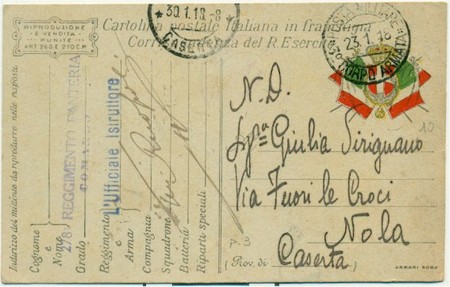 RIPRODUZIONE
E VENDITA
PUNITE
ART 245 E 210 C.P.
Cartolina postale Italiana in franchigia
Corrispondenza del R. Esercito
30.1.18-8
CASERTA
POSTA MILITARE
23.1.18
CORPO ARMATA
N. D.
Sig.ra Giulia Sirignano
Via Fuori le Croci
Nola
Caserta
(Prov. di
)
10
P. 3
Indirizzo del mittente da riprodurre nelle risposte
Cognome
e
Nome
Grado
278° REGGIMENTO FANTERIA
COMANDO
Reggimento
e
Arma
L'Ufficiale Istruttore
Compagnia
Squadrone
Batteria
Riparti speciali
ARMANI ROMA